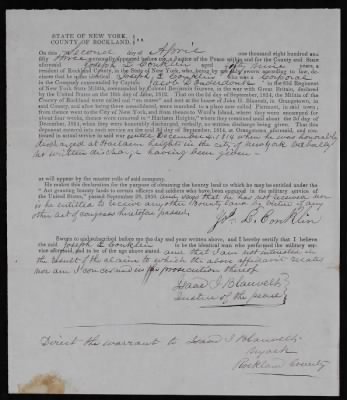 STATE OF NEW YORK,
COUNTY OF ROCKLAND. ss
On this Second day of April one thousand eight hundred and
fifty three personally appeared before me a Justice of the Peace within and for the County and State
aforesaid Joseph D. Conklin aged fifty nine years, a
resident of Rockland County, in the State of New York, who, being by me duly sworn according to law, de-
clares that he is the identical Joseph D. Conklin who was a Corporal
in the Company commanded by Captain Jacob in the 83d Regiment
of New York State Militia, commanded by Colonel Benjamin Gurnee, in the war with Great Britain, declared
by the United States on the 18th day of June, 1812. That on the 2d day of September, 1814, the Militia of the
County of Rockland were called out "en masse" and met at the house of John D. Blauvelt, in Orangetown, in
said County, and after being there consolidated, were marched to a place now called Piermont, in said town;
from thence went to the City of New York, and from thence to Ward's Island, where they were encamped for
about four weeks, thence were removed to "Harlaem Heights," where they were encamped until the day of
December, 1814, when they were honorably discharged, verbally, no written discharge being given. That this
deponent entered into such service on the 2d day of September, 1814, at Orangetown, aforesaid, and con-
tinued in actual service in said war until December 1814 when he was honorably
discharged at Harlaem heights in the city of New York verbally
no written discharge having been given
as will appear by the muster rolls of said company.
He makes this declaration for the purpose of obtaining the bounty land to which he may be entitled under the
"Act granting bounty land to certain officers and soldiers who have been engaged in the military service of
the United States," passed September 28, 1850 and says that he has not received nor
is he entitled to receive any other bounty land by virtue of any
other act of congress heretofore passed
Jos D. Conklin
Sworn to and subscribed before me the day and year above written, and I hereby certify that I believe
the said Joseph D. Conklin to be the identical man who performed the military ser-
vice aforesaid, and to be of the age above stated and that I am not interested in
the result of the claim to which the above affidavit relates
nor am I concerned in the prosecution thereof
Isaac I Blauvelt
Justice of the peace
Direct the warrant to Isaac I Blauvelt
Nyack
Rockland County